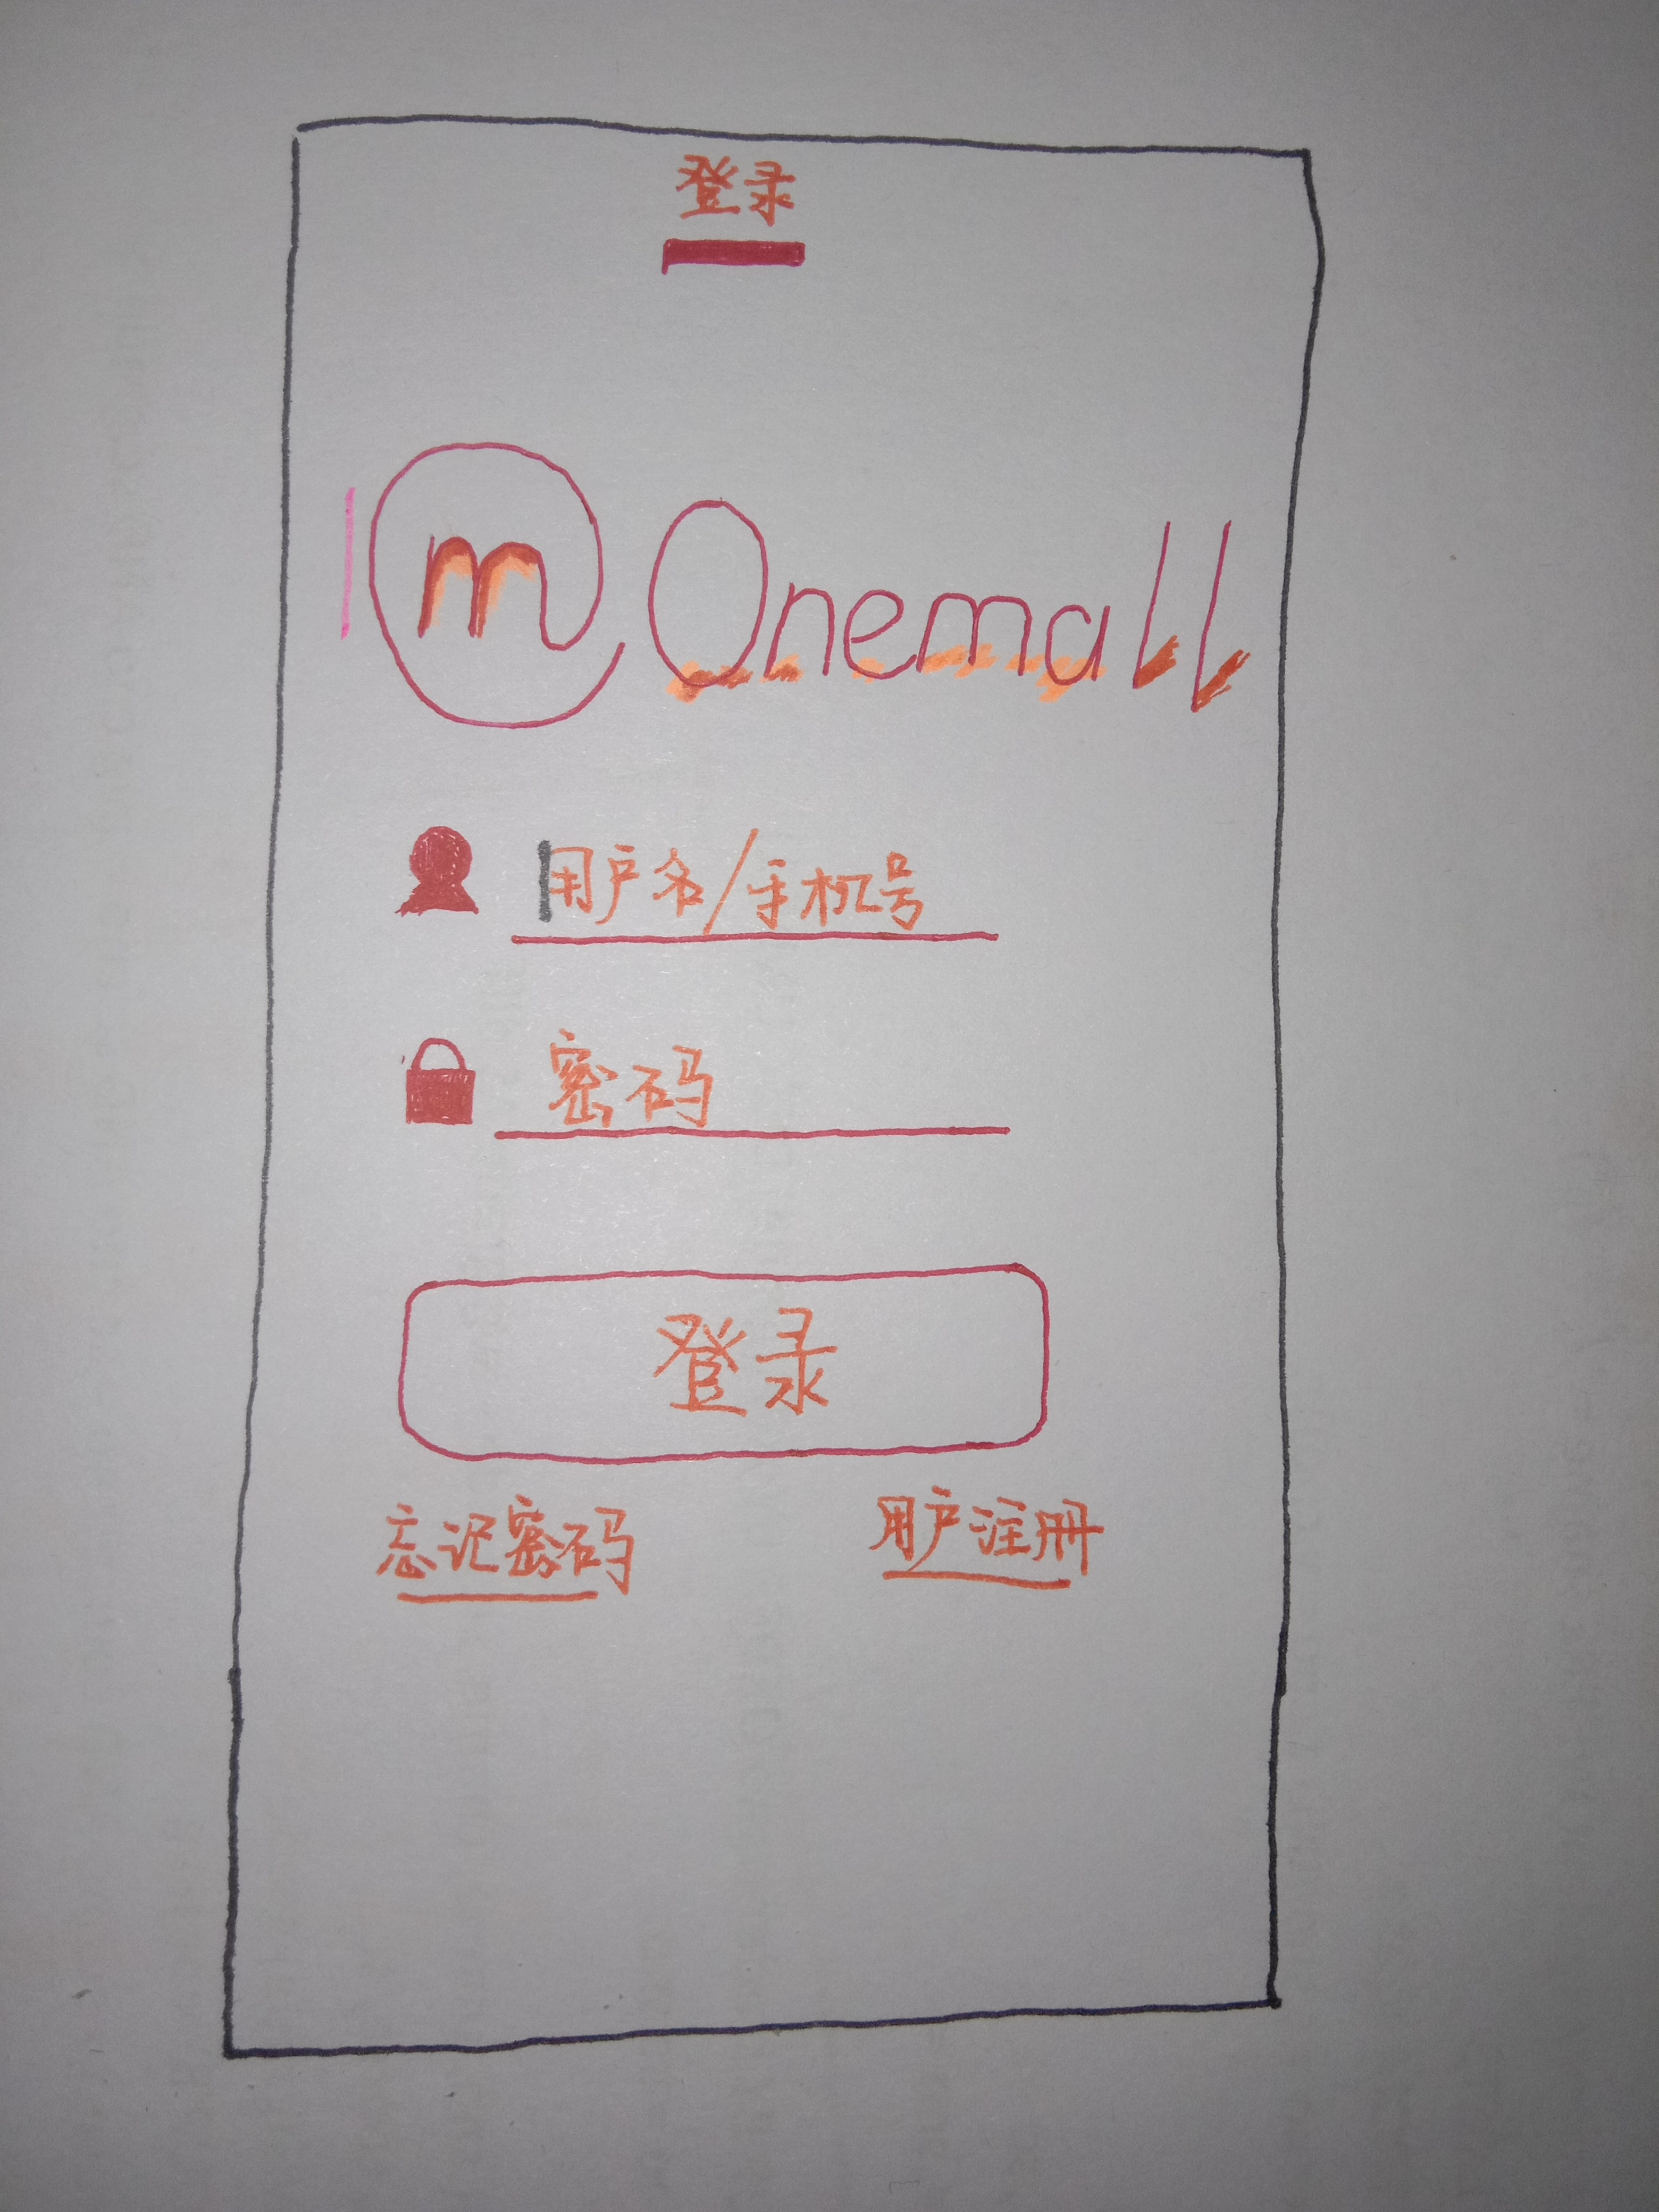 登录
m Onemall
用户名/手机号
密码
登录
忘记密码 用户注册